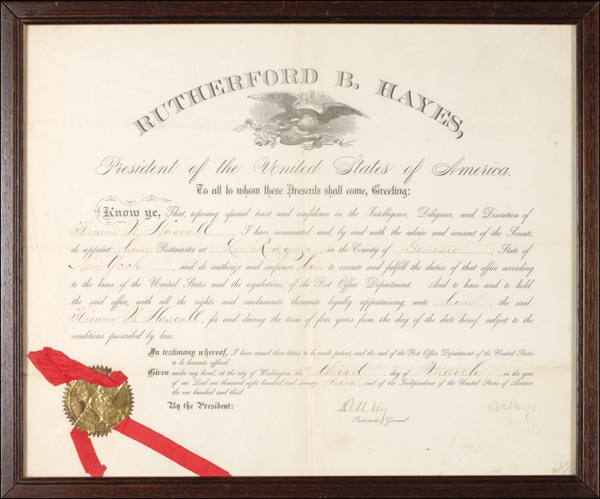 RUTHERFORD B. HAYES,
President of the United States of America.
To all to whom these Presents shall come, Greeting:
Know ye, That, reposing special trust and confidence in the Intelligence, Diligence, and Discretion of
Hiram W. Hascall I have nominated, and, by and with the advice and consent of the Senate,
do appoint him Postmaster at Le Roy, in the County of Genesee State of
New York and do authorize and empower him to execute and fulfill the duties of that office according
to the laws of the United States and the regulations of the Post Office Department. And to have and to hold
the said office, with all the rights and emoluments thereunto legally appertaining, unto him, the said
Hiram W. Hascall, for and during the term of four years from the day of the date hereof, subject to the
conditions prescribed by law.
In testimony whereof, I have caused these letters to be made patent, and the seal of the Post Office Department of the United States
to be hereunto affixed.
Given under my hand, at the city of Washington, the third day of March, in the year
of our Lord one thousand eight hundred and seventy-nine, and of the Independence of the United States of America
the one hundred and third.
By the President:
D M Key
Postmaster General
R B Hayes